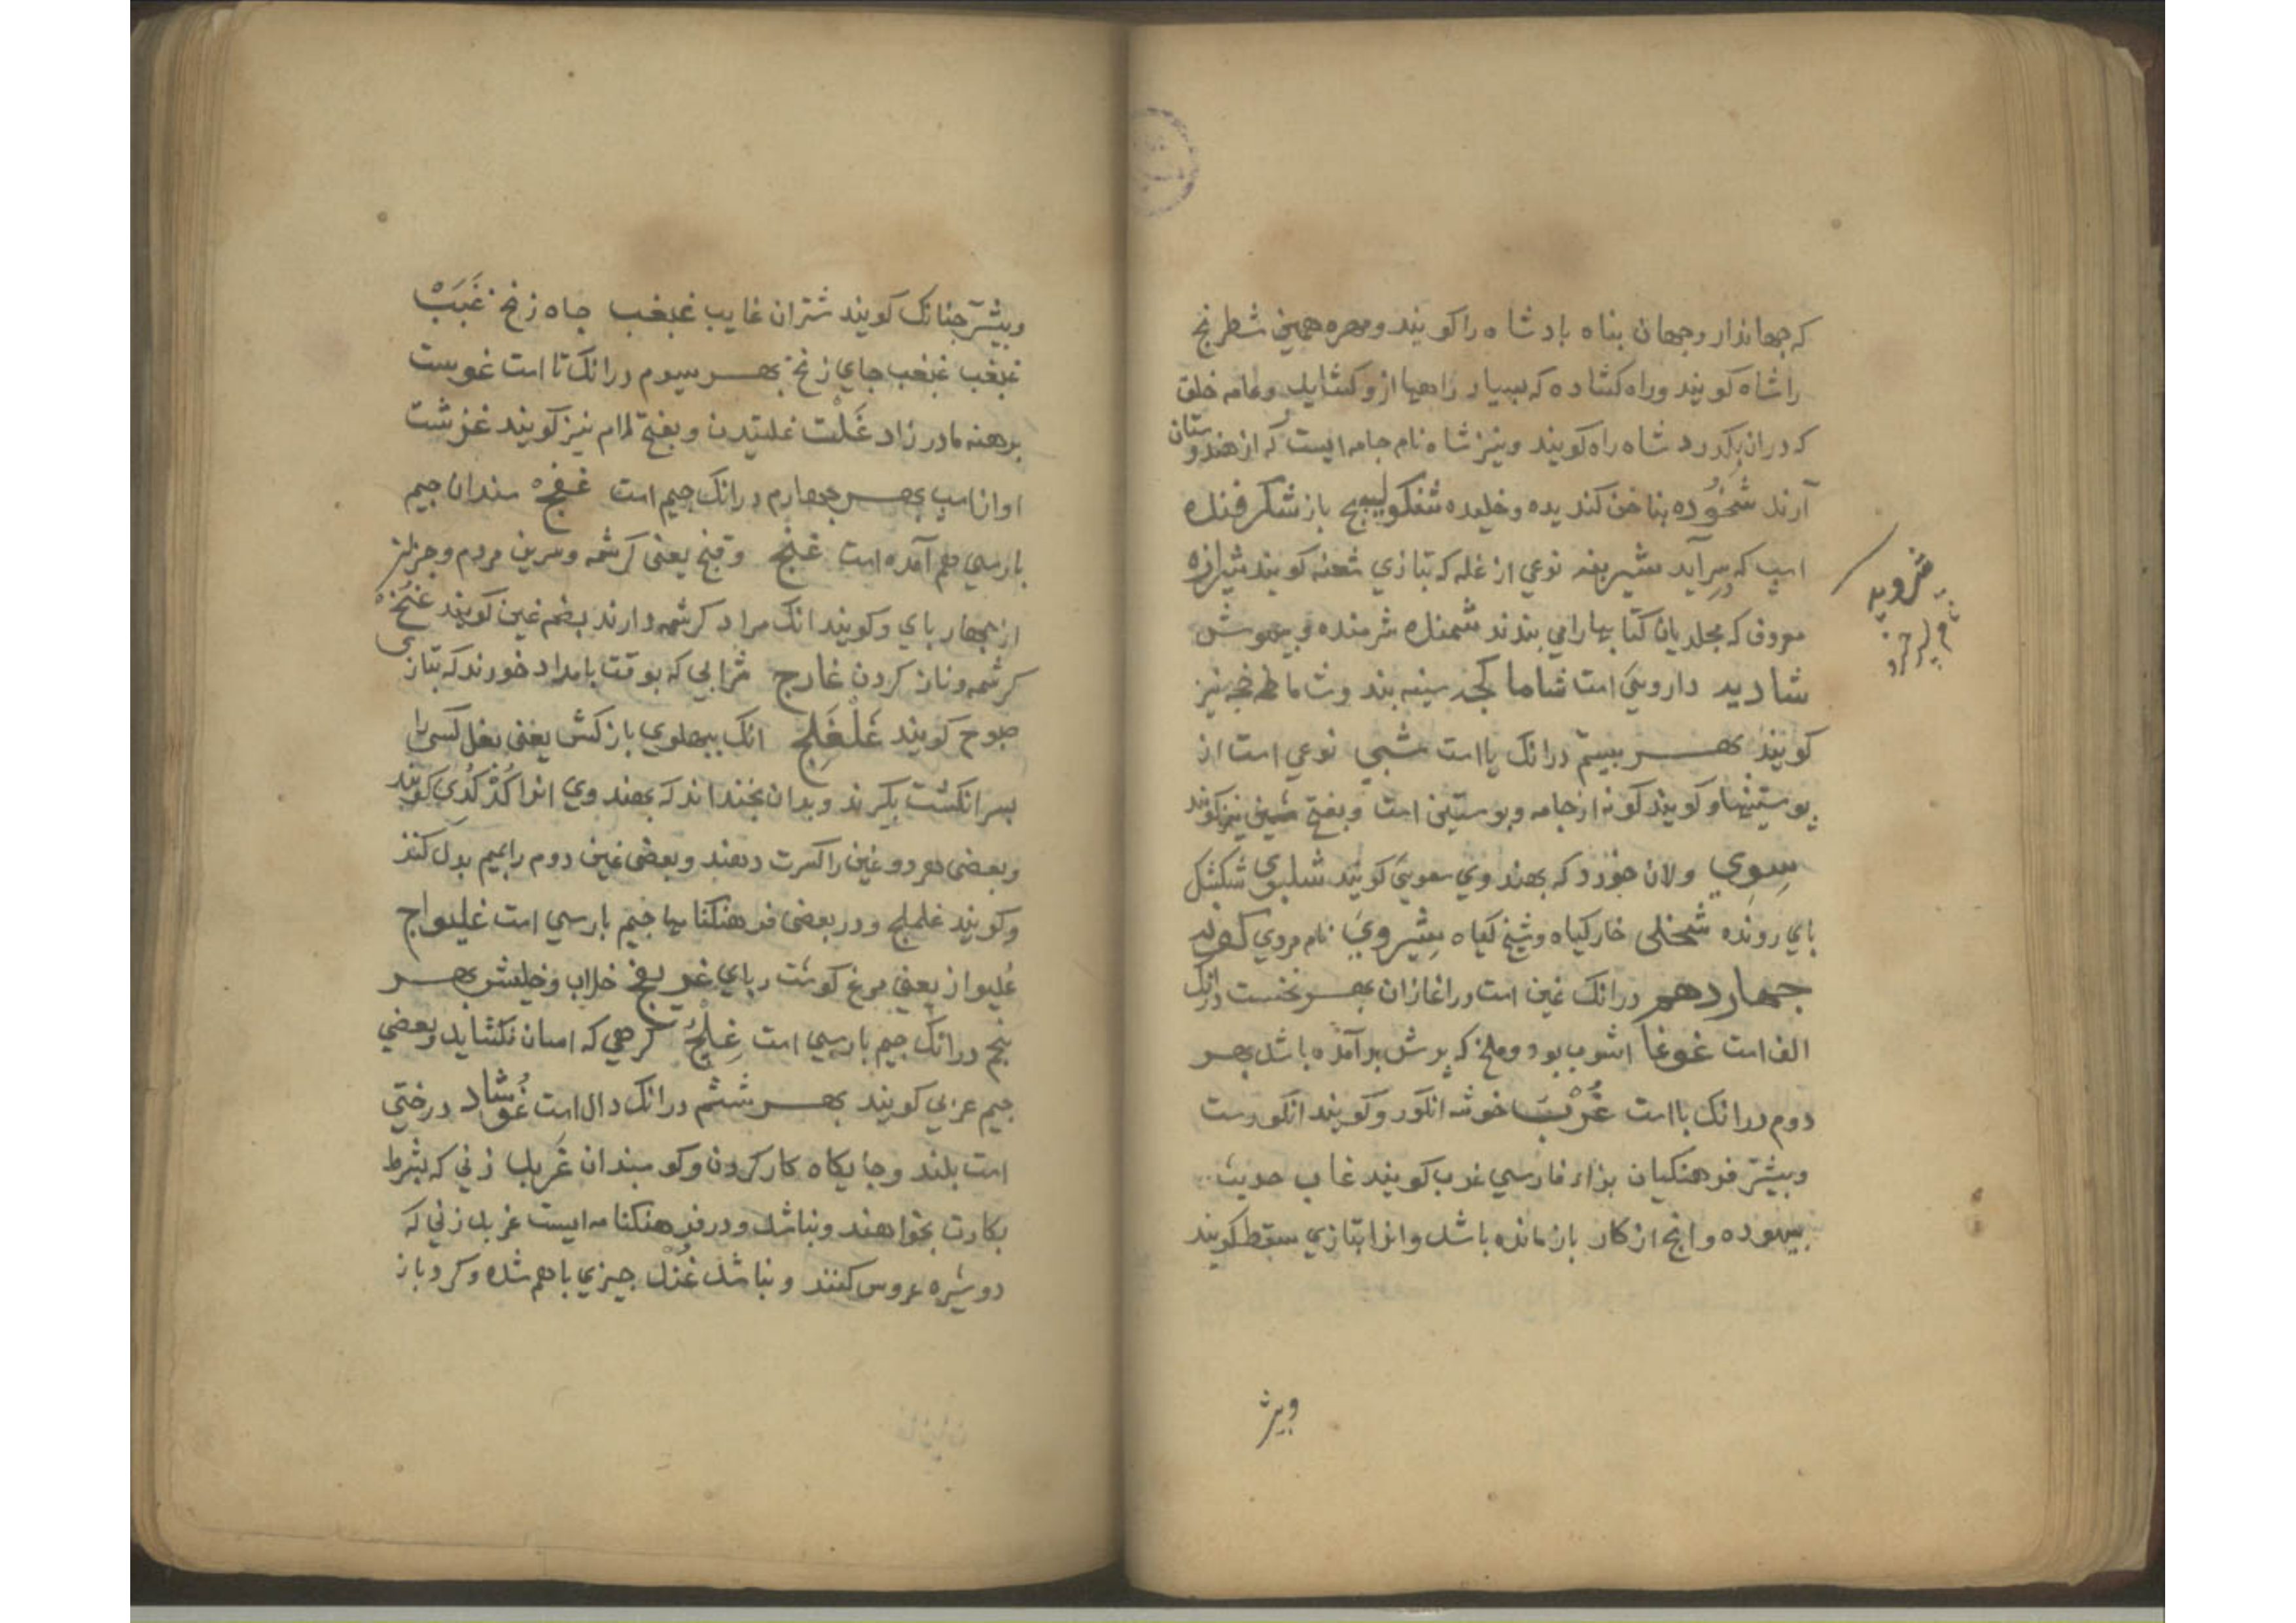 که جهاندار وجهان بناه بادشاه را کویند ومهره همین شطرنج
را شاه کویند وراه کشاده که بسیار راهها ازو کشاید وعامه خلق
که دران بکدرد شاه راه کویند ونیز شاه نام جامه ایست که از هندوستان
آرند شخوده بناخن کندیده وخلیده باز شکرفنده
اسپ که بسر آید نوعی از غله که بتازی کویند شیرازه
معروف که مجلدیان کتابها را می بندند شمنده شرمنده وبیهوش
شادید دارویی است شاماکجه سینه بند وشاماخجه نیز
کویند بهر بیستم درانک یا است شبی نوعی است از
پوستینها وکویند کونه از جامه وپوستین است وبفتح شین نیز کویند
سوی ولان خورد که بهندوی کویند شلپوی شکشکل
بای رونده شخلی خارکیاه وشیخ کیاه شیروی نام مردی
جهاردهم درانک غین است دراغازان بهر نخست درانک
الف است غوغا اشوب بود وملخ که پرش برآمده باشد بهر
دوم درانک با است غرب خوشه انکور وکویند انکورست
وبیشتر فرهنکیان بزاء فارسی غژب کویند غاب حدیث
بیهوده وانچ از کار بازمانده باشد وانرا بتازی سقط کویند
وبیشتر
وبیشتر جنانک کویند شتران غایب غبغب جاه زنخ غبب
غبغب غبغب جای زنخ بهر سوم درانک تا است غوست
برهنه مادرزاد غلت غلتیدن وبفتح لام نیز کویند غزشت
اواز اسپ بهر جهارم درانک جیم است غفج سندان جیم
بارسی هم آمده است غنج وقنج یعنی کرشمه وسرین مردم وجزان
از جهار بای وکویند انک مراد کرشمه دارند بضم غین کویند
کرشمه وناز کردن غارج شرابی که بوقت بامداد خورند که بتازی
صبوح کویند غلغلج انک ببهلوی یا زکش یعنی بغل کسی را
بسر انکشت بکیرند وبدان بخنداند که بهندوی انرا کدکدی کویند
وبعضی هر دو غین را کسرت دهند وبعضی غین دوم را بمیم بدل کنند
وکویند غلملج ودر بعضی فرهنکنامها جیم بارسی است غلیواج
غلیواز یعنی مرغ کوشت ربای غریفج خلاب وخلیش بهر
بنجم درانک جیم بارسی است غلج کرهی که اسان نکشاید وبعضی
جیم عربی کویند بهر ششم درانک دال است غوشاد درختی
است بلند وجایکاه کار کردن وکوسبندان غرید زنی که بشرط
بکارت بخواهند ونباشد ودر فرهنکنامه ایست غرید زنی که
دوشیزه عروس کنند ونباشد غند جیزی باهم شده وکرد باز